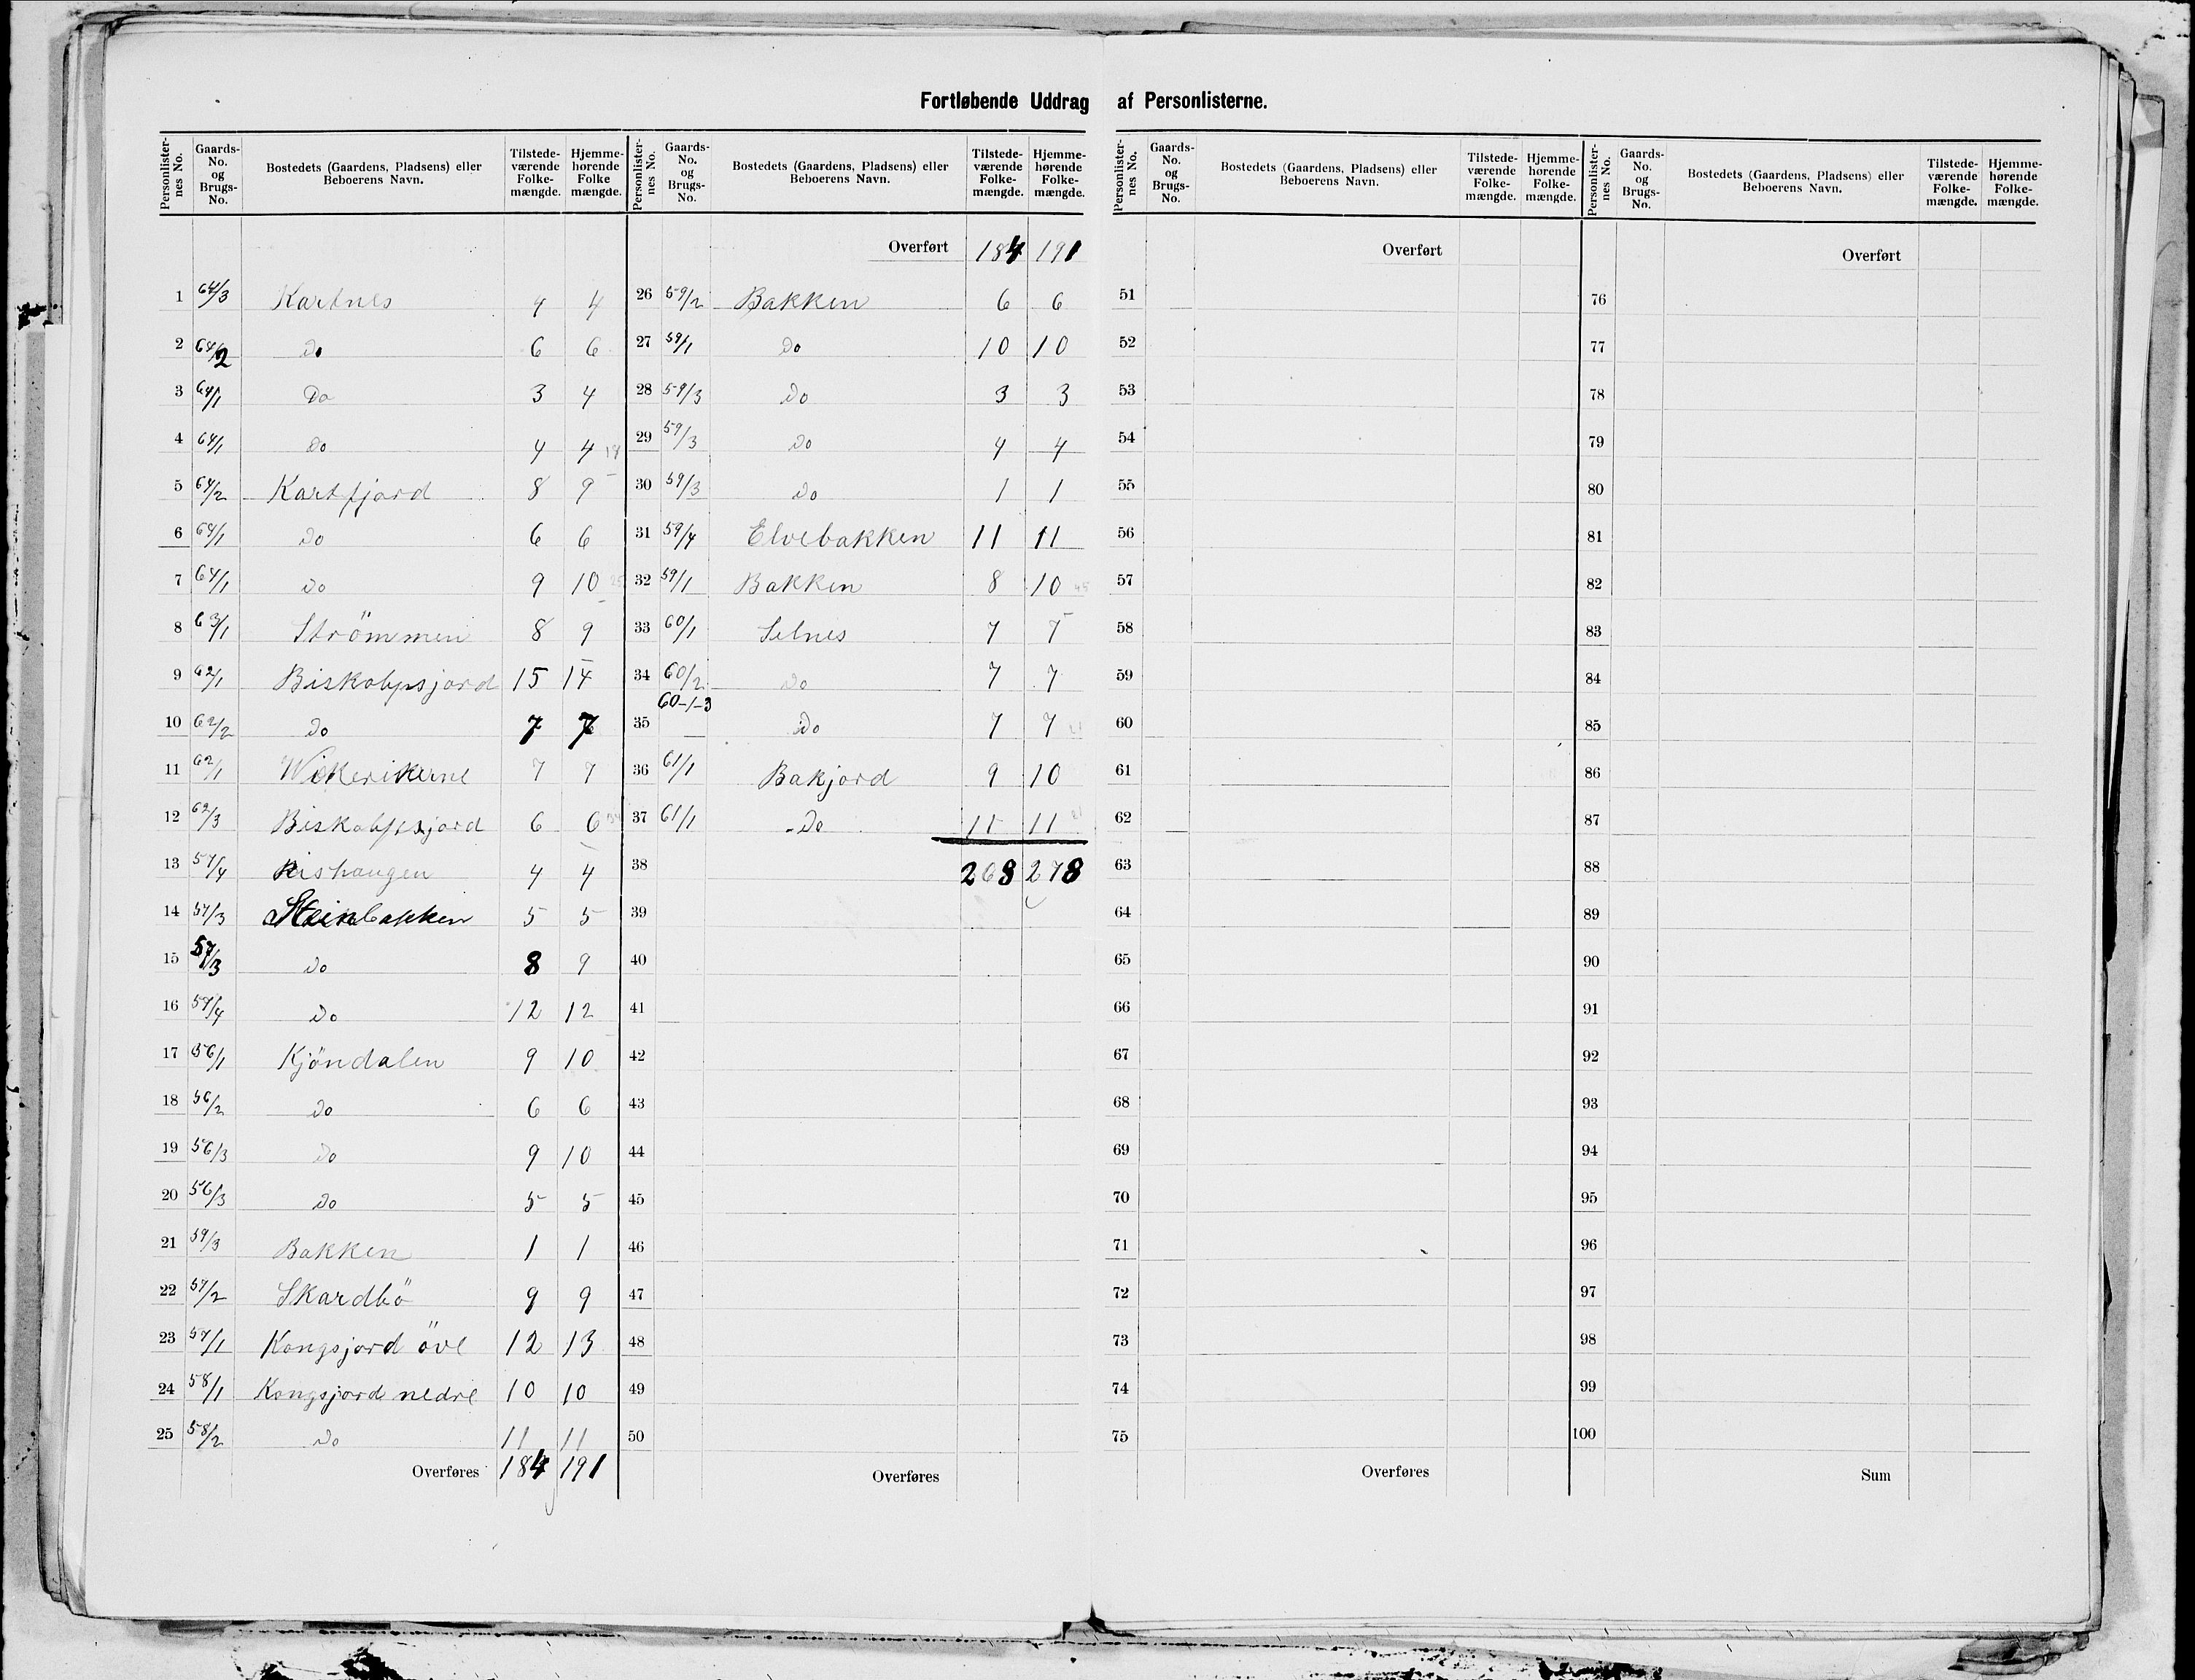 Fortløbende Uddrag af Personlisterne.
Personlister-nes No. | Gaards-No. og Brugs-No. | Bostedets (Gaardens, Pladsens) eller Beboerens Navn. | Tilstede-værende Folke-mængde. | Hjemme-hørende Folke mængde.
1 64/3 Kartnes 4 4
2 64/2 Do 6 6
3 64/1 Do 3 4
4 64/1 Do 4 4 18
5 64/2 Kartfjord 8 9
6 64/1 Do 6 6
7 64/1 Do 9 10 25
8 63/1 Strömmen 8 9
9 62/1 Biskopsjord 15 14
10 62/2 Do 7 7
11 62/1 7 7
12 62/3 Biskopsjord 6 6 34
13 57/4 Rishaugen 4 4
14 57/3 Steinbakken 5 5
15 57/3 Do 8 9
16 57/4 Do 12 12
17 56/1 Kjöndalen 9 10
18 56/2 Do 6 6
19 56/3 Do 9 10
20 56/3 Do 5 5
21 59/3 Bakken 1 1
22 57/2 Skardbö 9 9
23 57/1 Kongsjord övl 12 13
24 58/1 Kongsjord nedre 10 10
25 58/2 Do 11 11
Overføres 184 191
Personlister-nes No. | Gaards-No. og Brugs-No. | Bostedets (Gaardens, Pladsens) eller Beboerens Navn. | Tilstede-værende Folke-mængde. | Hjemme-hørende Folke-mængde.
Overført 184 191
26 59/2 Bakken 6 6
27 59/1 Do 10 10
28 59/3 Do 3 3
29 59/3 Do 4 4
30 59/3 Do 1 1
31 59/4 Elvebakken 11 11
32 59/1 Bakken 8 10 45
33 60/1 Selnes 7 7
34 60/2 Do 7 7
35 60-1-3 Do 7 7 21
36 61/1 Bakjord 9 10
37 61/1 Do 11 11 21
38 268 278
39
40
41
42
43
44
45
46
47
48
49
50
Overføres
Personlister-nes No. | Gaards-No. og Brugs-No. | Bostedets (Gaardens, Pladsens) eller Beboerens Navn. | Tilstede-værende Folke-mængde. | Hjemme-hørende Folke-mængde.
Overført
51
52
53
54
55
56
57
58
59
60
61
62
63
64
65
66
67
68
69
70
71
72
73
74
75
Overføres
Personlister-nes No. | Gaards-No. og Brugs-No. | Bostedets (Gaardens, Pladsens) eller Beboerens Navn. | Tilstede-værende Folke-mængde. | Hjemme-hørende Folke-mængde.
Overført
76
77
78
79
80
81
82
83
84
85
86
87
88
89
90
91
92
93
94
95
96
97
98
99
100
Sum